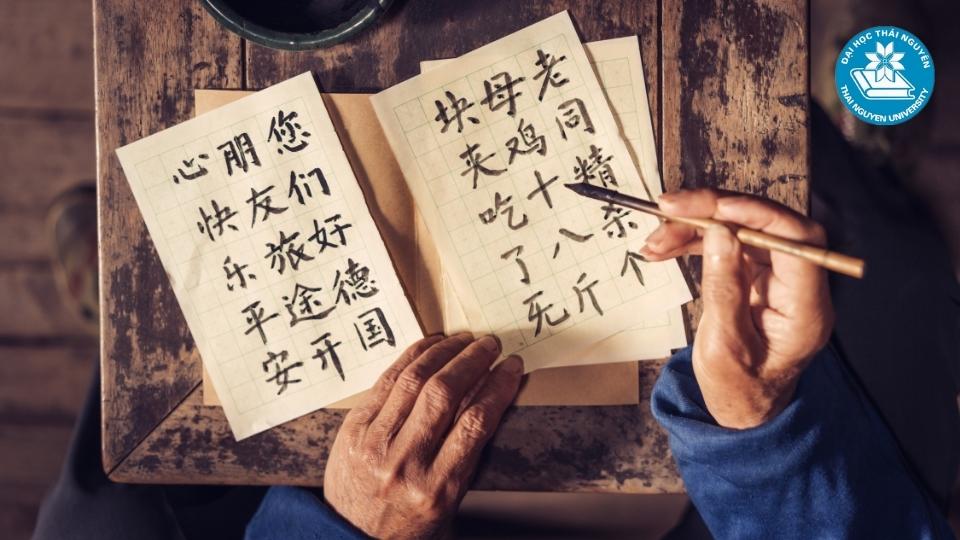 老同精杀个
母鸡十八斤
块夹吃了
您们好德国
朋友旅途开
心快乐平安
ĐẠI HỌC THÁI NGUYÊN
THAI NGUYEN UNIVERSITY